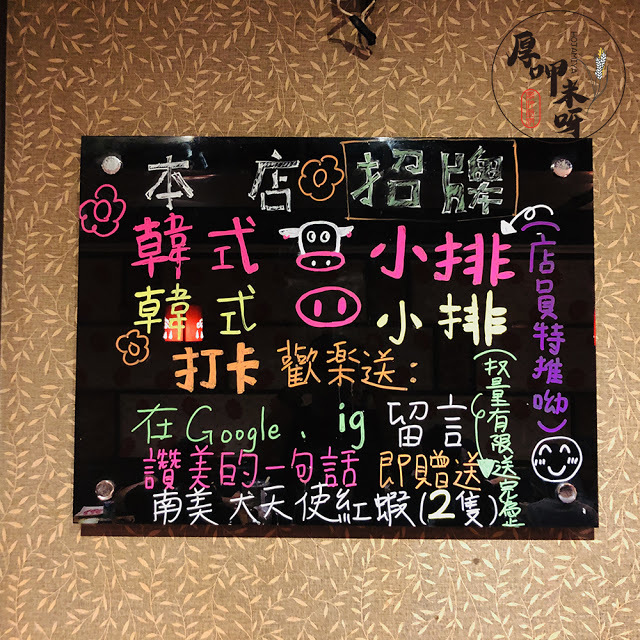 厚呷未呀
本店招牌
韓式 小排
韓式 小排
(店員特推呦)
打卡 歡樂送:
在Google、ig 留言
讚美的一句話 即贈送
南美大天使紅蝦(2隻)
(数量有限送完為止)